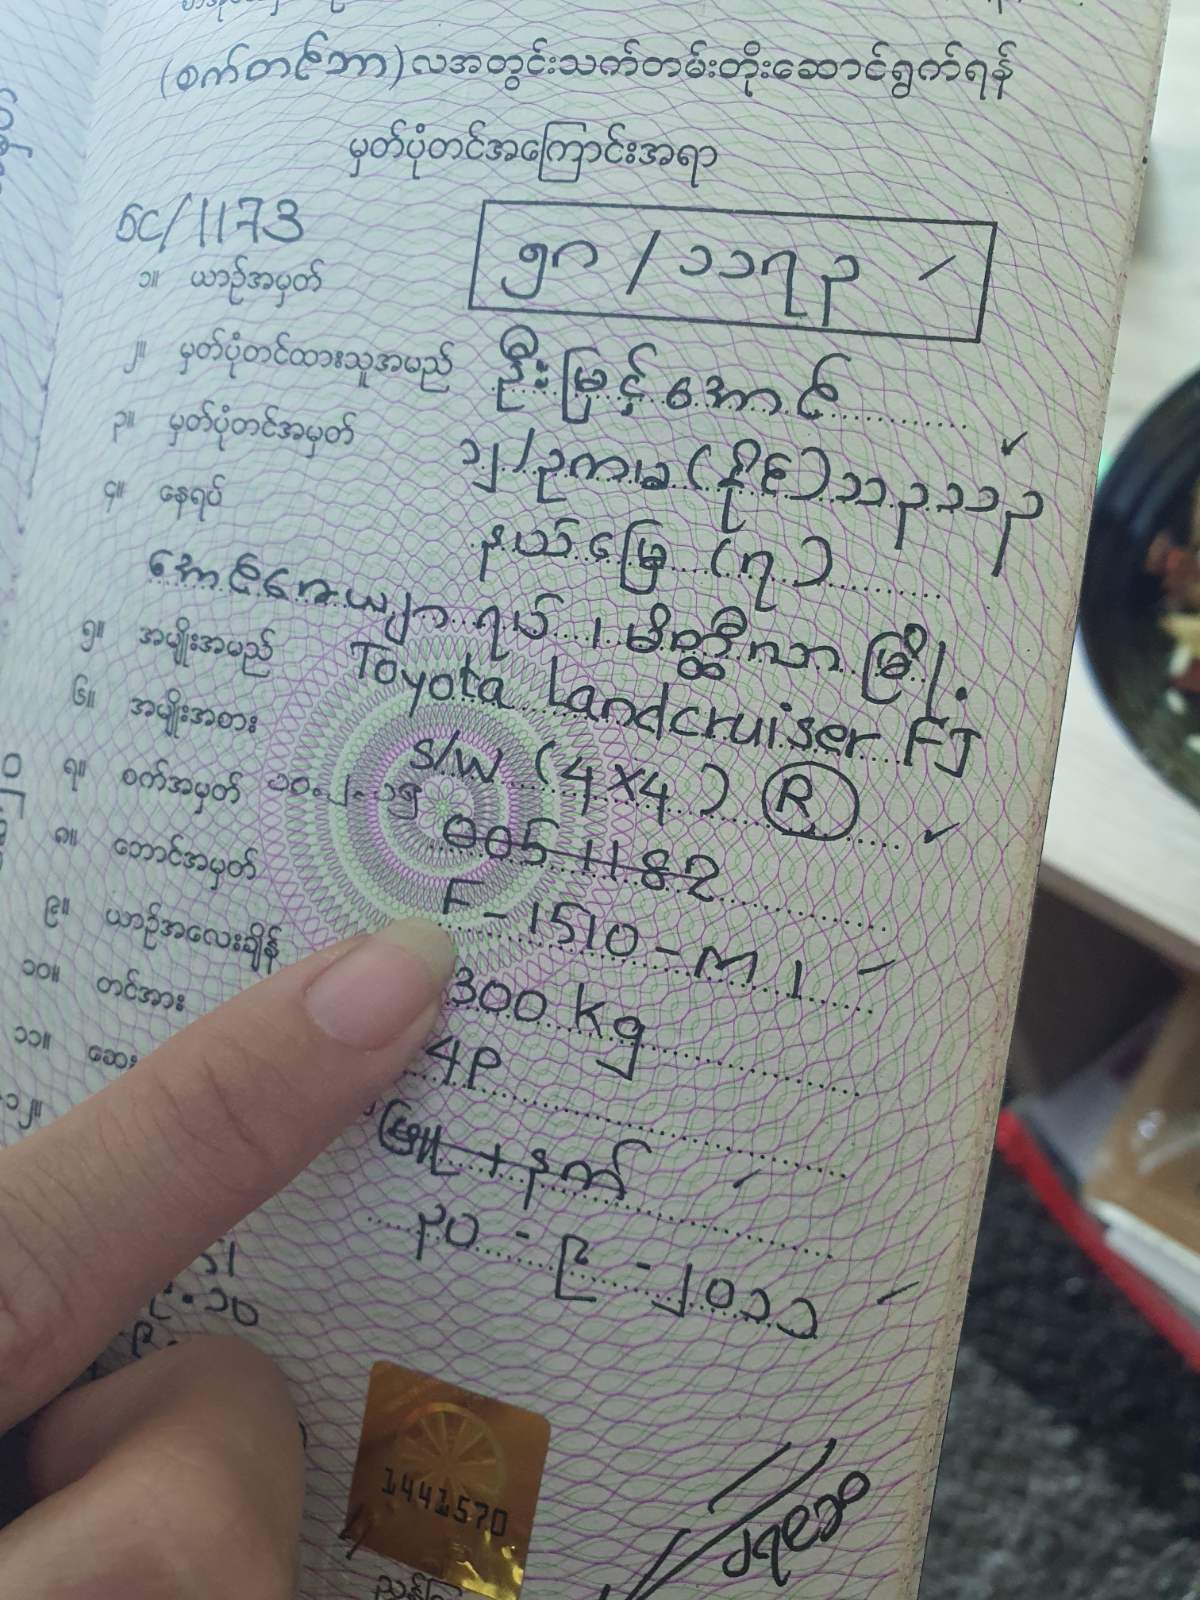 (စက်တင်ဘာ) လအတွင်းသက်တမ်းတိုးဆောင်ရွက်ရန်
မှတ်ပုံတင်အကြောင်းအရာ
5C/1173
၁။ ယာဉ်အမှတ် ၅ဂ / ၁၁၇၃
၂။ မှတ်ပုံတင်ထားသူအမည် ဦးမြင့်အောင်
၃။ မှတ်ပုံတင်အမှတ် ၁၂/ဥကမ (နိုင်)
၄။ နေရပ် နယ်မြေ (၇)
ရပ် ၊ မိတ္ထီလာမြို့.
၅။ အမျိုးအမည် Toyota Landcruiser FJ
၆။ အမျိုးအစား S/W (4x4) R
၇။ စက်အမှတ် ၁၀.၂.၁၅ 0051182
၈။ ဘောင်အမှတ် F-1510-M1
၉။ ယာဉ်အလေးချိန် 300 Kg
၁၀။ တင်အား 4P
၁၁။ ဆေး ဖြူ + နက်
၁၂။ ၃၀ - ၉ - ၂၀၁၁
1441570